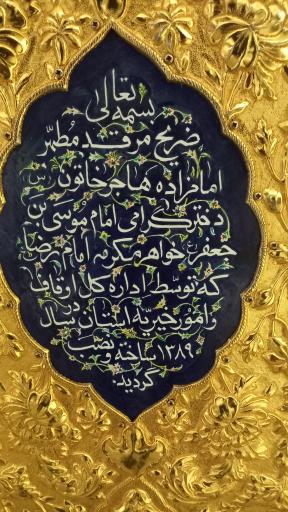 بسمه تعالی
ضریح مرقد مطهر
امامزاده هاجر خاتون
دختر گرامی امام موسی بن
جعفر ع خواهر مکرمه امام رضا
که توسط اداره کل اوقاف
و امور خیریه استان در سال
۱۳۸۹ ساخته و نصب
گردید